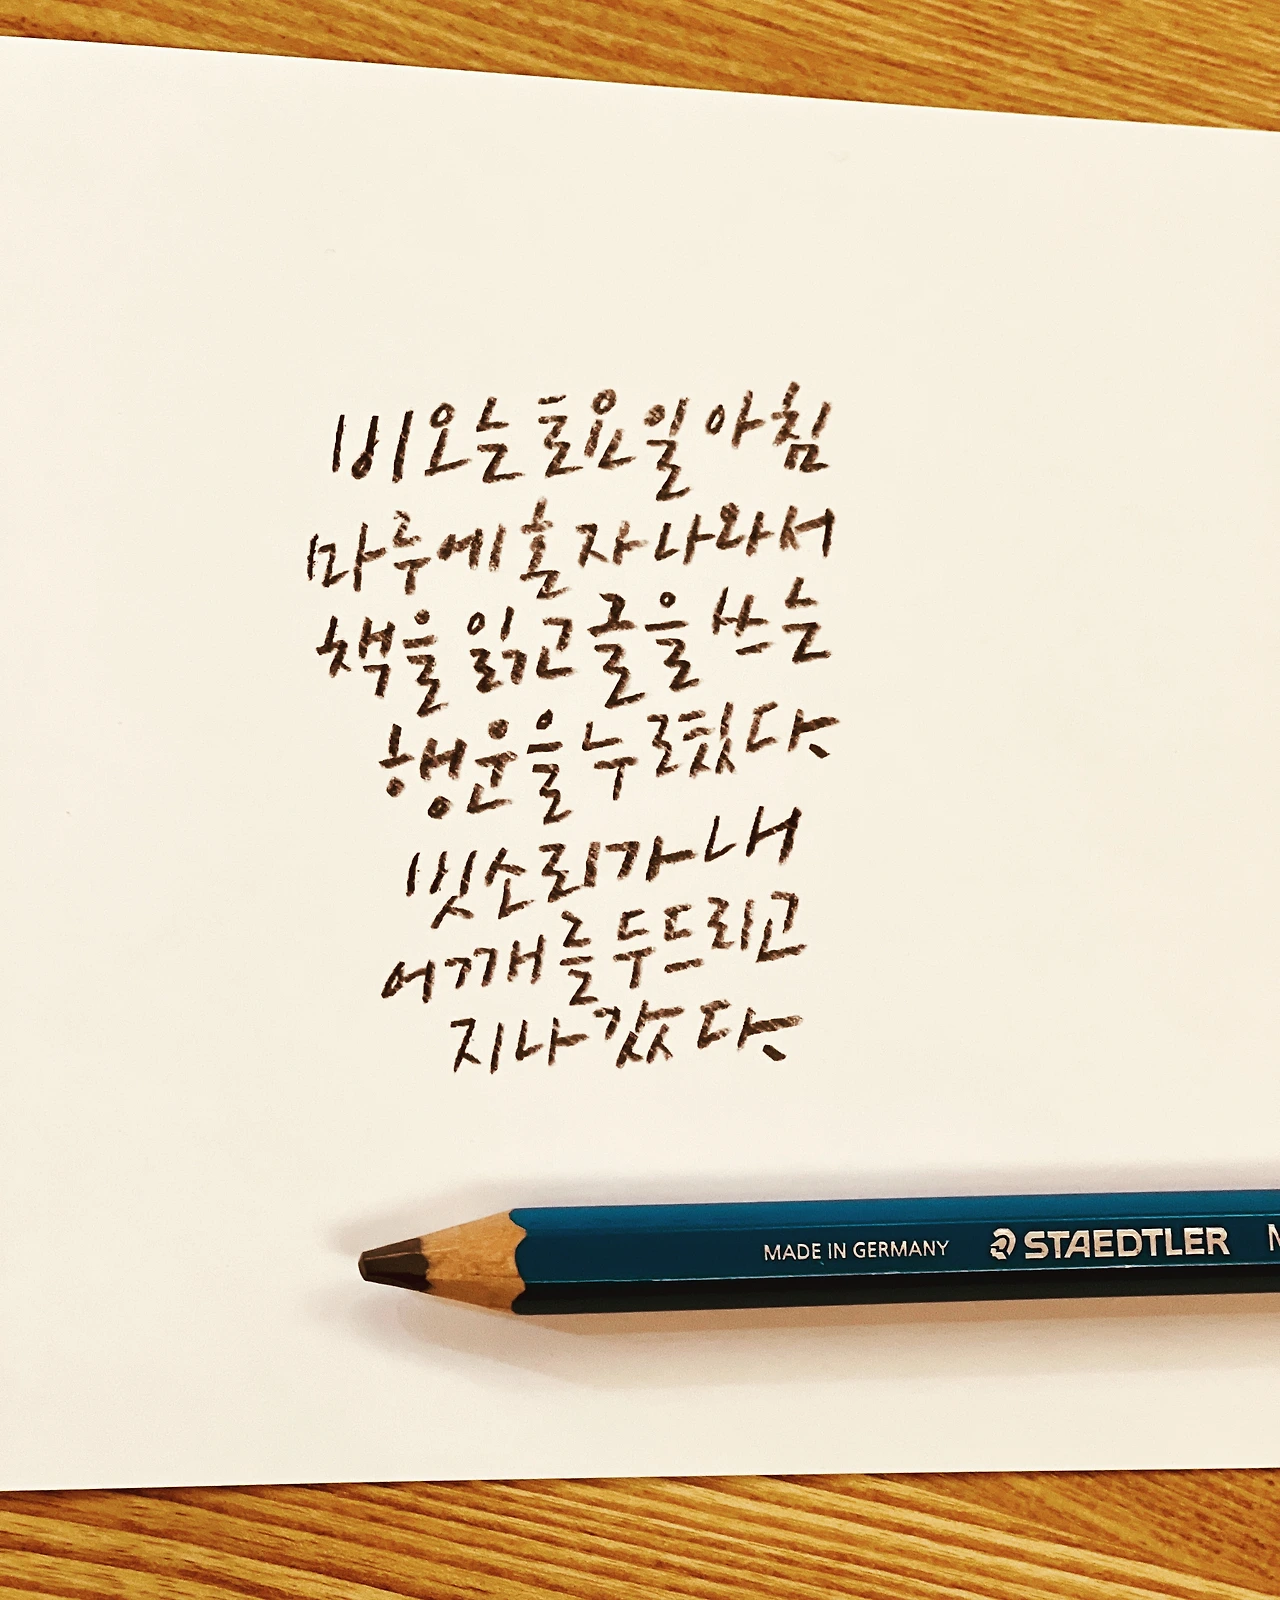 비오는 토요일 아침
마루에 혼자 나와서
책을 읽고 글을 쓰는
행운을 누렸다.
빗소리가 내
어깨를 두드리고
지나갔다.
MADE IN GERMANY STAEDTLER